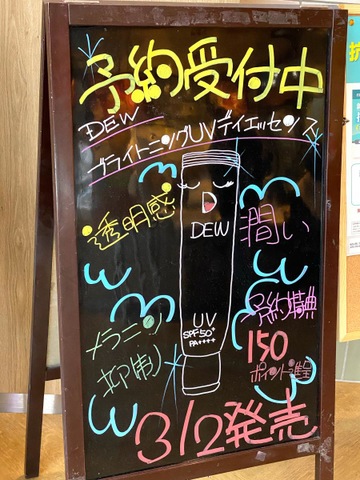 予約受付中
DEW
ブライトニングUVデイエッセンス
透明感
潤い
DEW
メラニン
抑制
UV
SPF50+
PA++++
予約特典
150
ポイント進呈
3/2発売